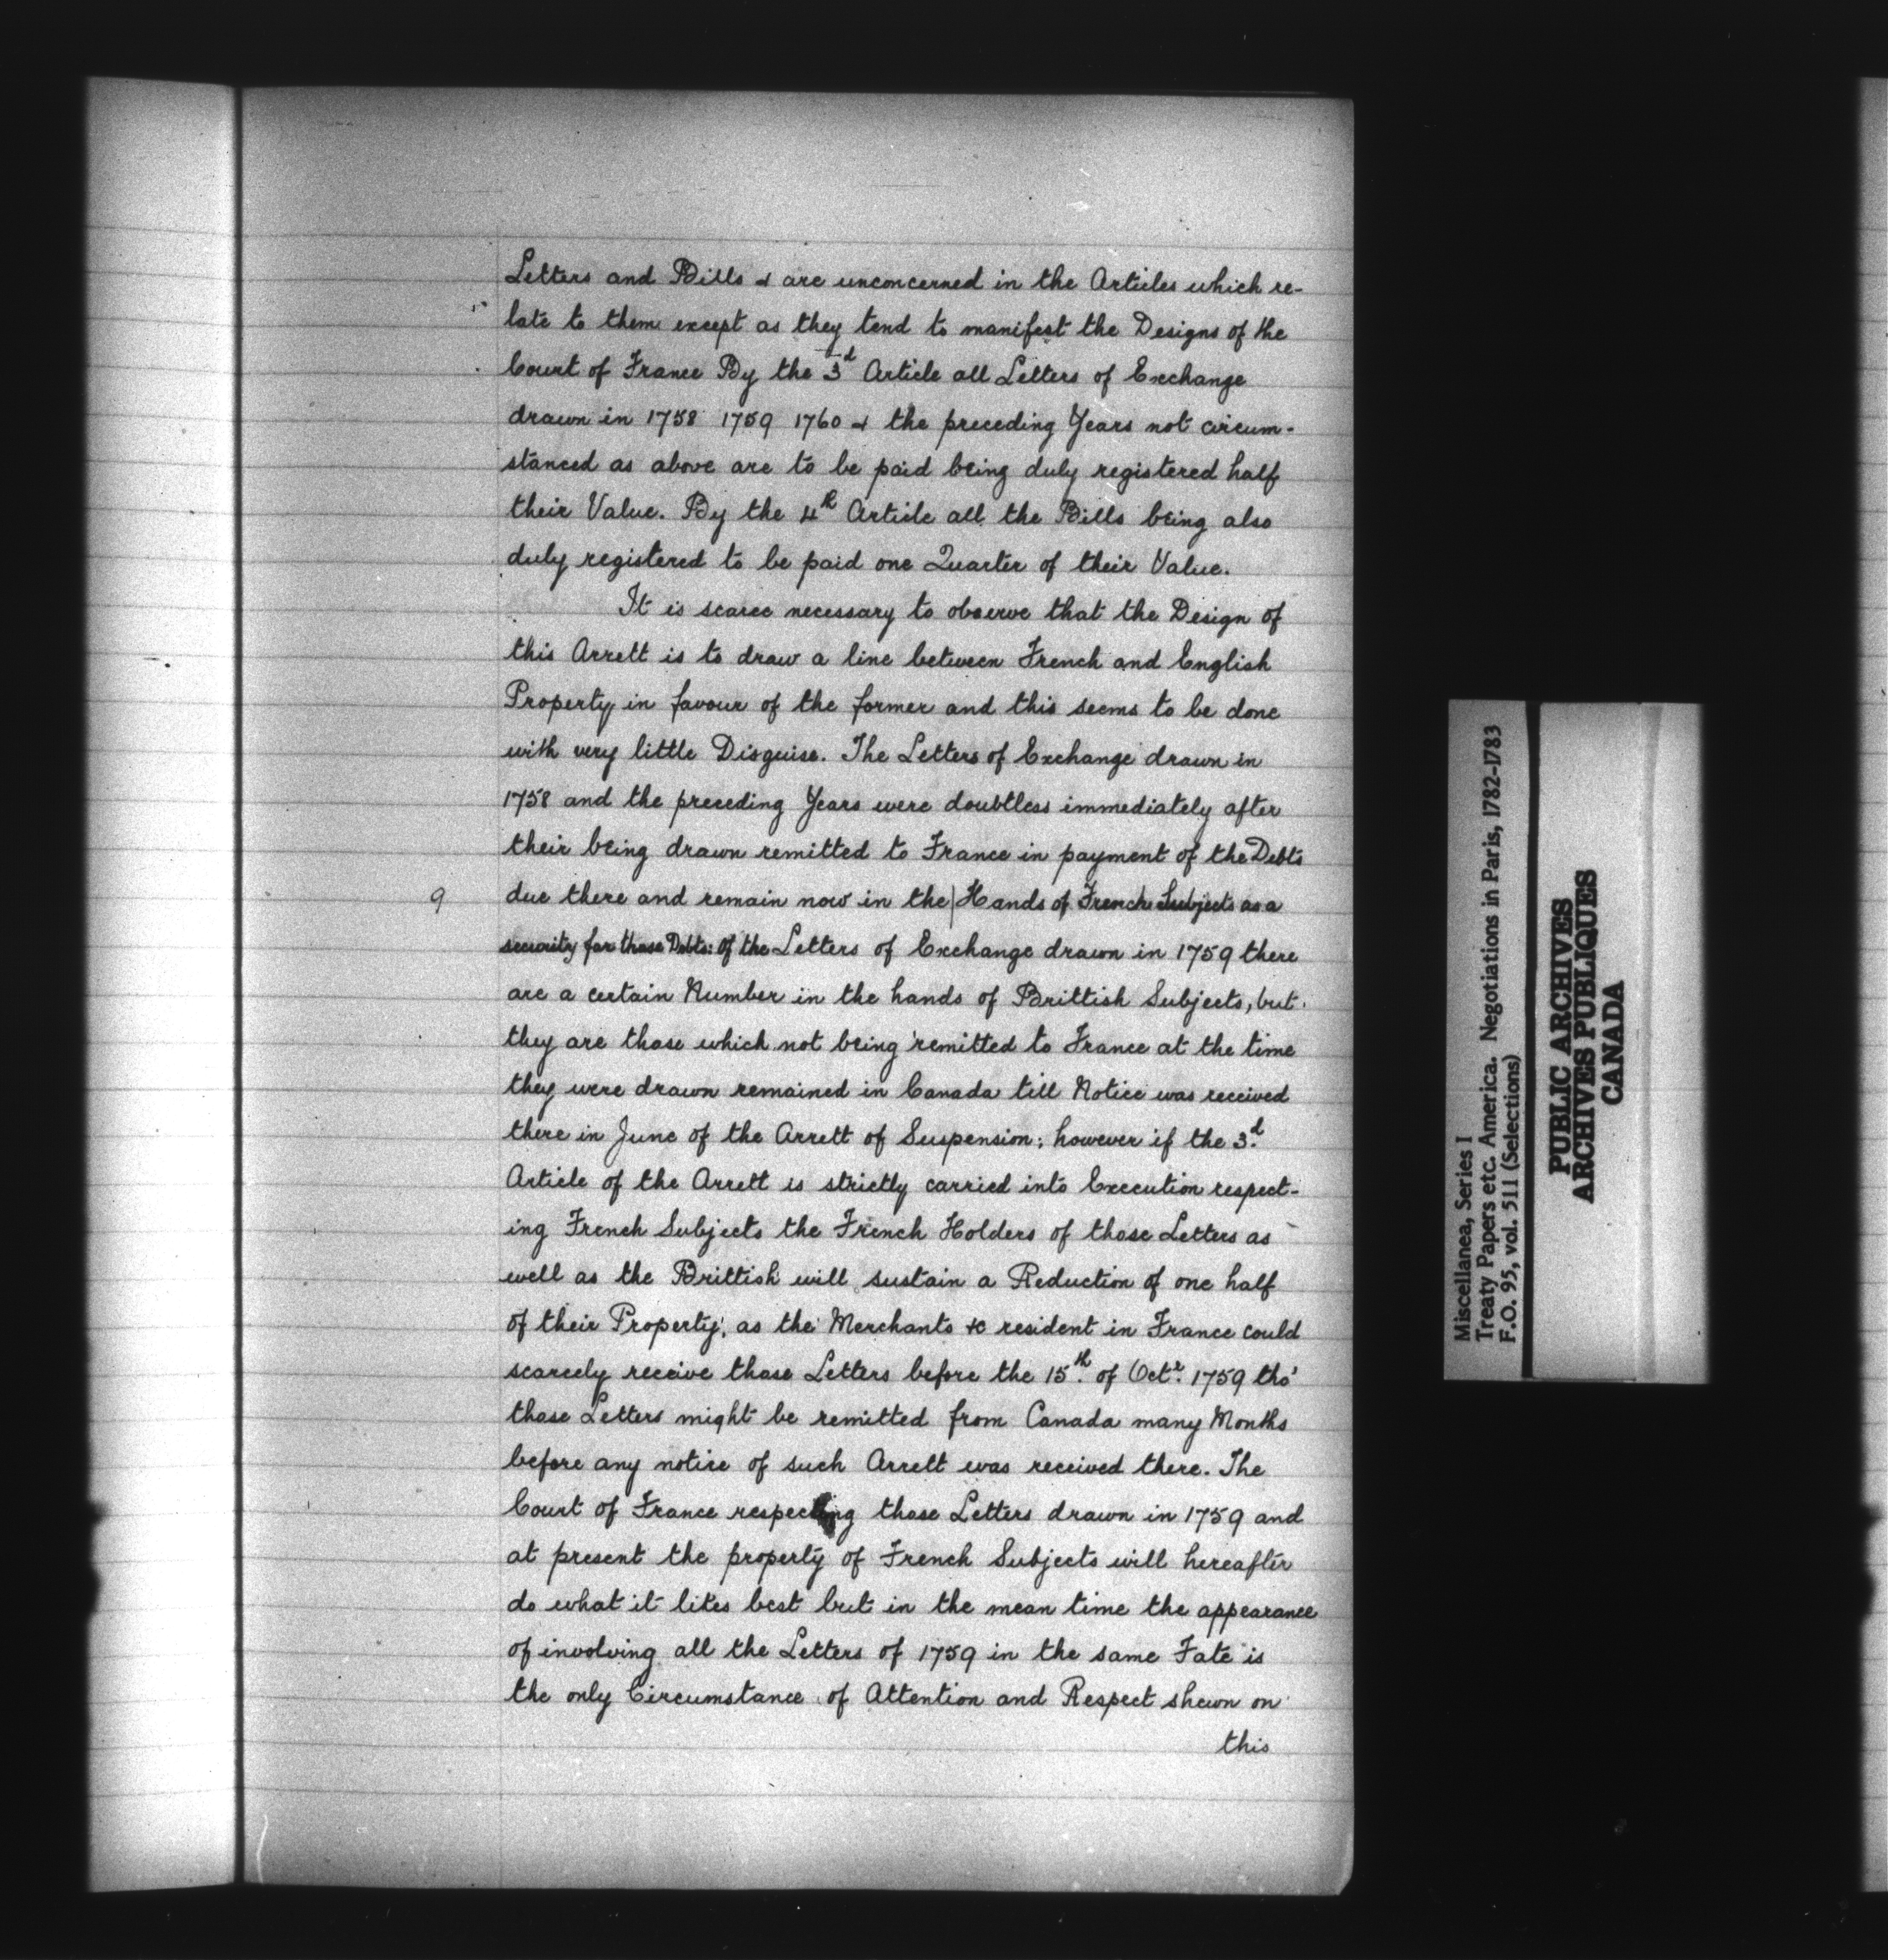 Letters and Bills & are unconcerned in the Articles which re-
late to them except as they tend to manifest the Designs of the
Court of France By the 3d Article all Letters of Exchange
drawn in 1758 1759 1760 & the preceding Years not circum-
stanced as above are to be paid being duly registered half
their Value. By the 4th Article all the Bills being also
duly registered to be paid one Quarter of their Value.
It is scarce necessary to observe that the Design of
this Arrett is to draw a line between French and English
Property in favour of the former and this seems to be done
with very little Disguise. The Letters of Exchange drawn in
1758 and the preceding Years were doubtless immediately after
their being drawn remitted to France in payment of the Debts
9 due there and remain now in the | Hands of French Subjects as a
security for those Debts: Of the Letters of Exchange drawn in 1759 there
are a certain Number in the hands of Brittish Subjects, but
they are those which not being remitted to France at the time
they were drawn remained in Canada till Notice was received
there in June of the Arrett of Suspension; however if the 3d.
Article of the Arrett is strictly carried into Execution respect-
ing French Subjects the French Holders of those Letters as
well as the Brittish will sustain a Reduction of one half
of their Property, as the Merchants &c resident in France could
scarcely receive those Letters before the 15th. of Octr. 1759 tho'
those Letters might be remitted from Canada many Months
before any notice of such Arrett was received there. The
Court of France respecting those Letters drawn in 1759 and
at present the property of French Subjects will hereafter
do what it likes best but in the mean time the appearance
of involving all the Letters of 1759 in the same Fate is
the only Circumstance of Attention and Respect shewn on
this
Miscellanea, Series I
Treaty Papers etc. America. Negotiations in Paris, 1782-1783
F.O. 95, vol. 511 (Selections)
PUBLIC ARCHIVES
ARCHIVES PUBLIQUES
CANADA